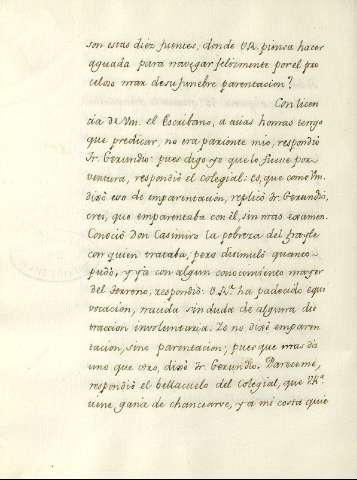 son estas diez fuentes, donde V.R. piensa hacer
aguada para navegar felizmente por el pro
celoso mar de su funebre parentacion?
Con licen
cia de Vm. el Escribano, a cuias honras tengo
que predicar, no era pariente mio, respondió
Fr. Gerundio: pues digo yo que lo fuese por
ventura, respondió el colegial: Es, que como Vm.
dixó eso de emparentación, replicó Fr. Gerundio,
crei, que emparentaba con él, sin mas examen.
Conoció Don Casimiro la pobreza del frayle
con quien trataba, pero disimuló quanto
pudo, y yá con algun conocimiento mayor
del terreno, respondió: V.Rma. ha padecido equi
vocacion, nacida sin duda de alguna dis
traccion involuntaria. Yo no dixé emparen
tacion, sino parentacion; pues que mas dá
uno que otro, dixó Fr. Gerundio. Pareceme,
respondió el bellacuelo del Colegial, que V.Rma.
tiene gana de chancearse, y á mi costa quie